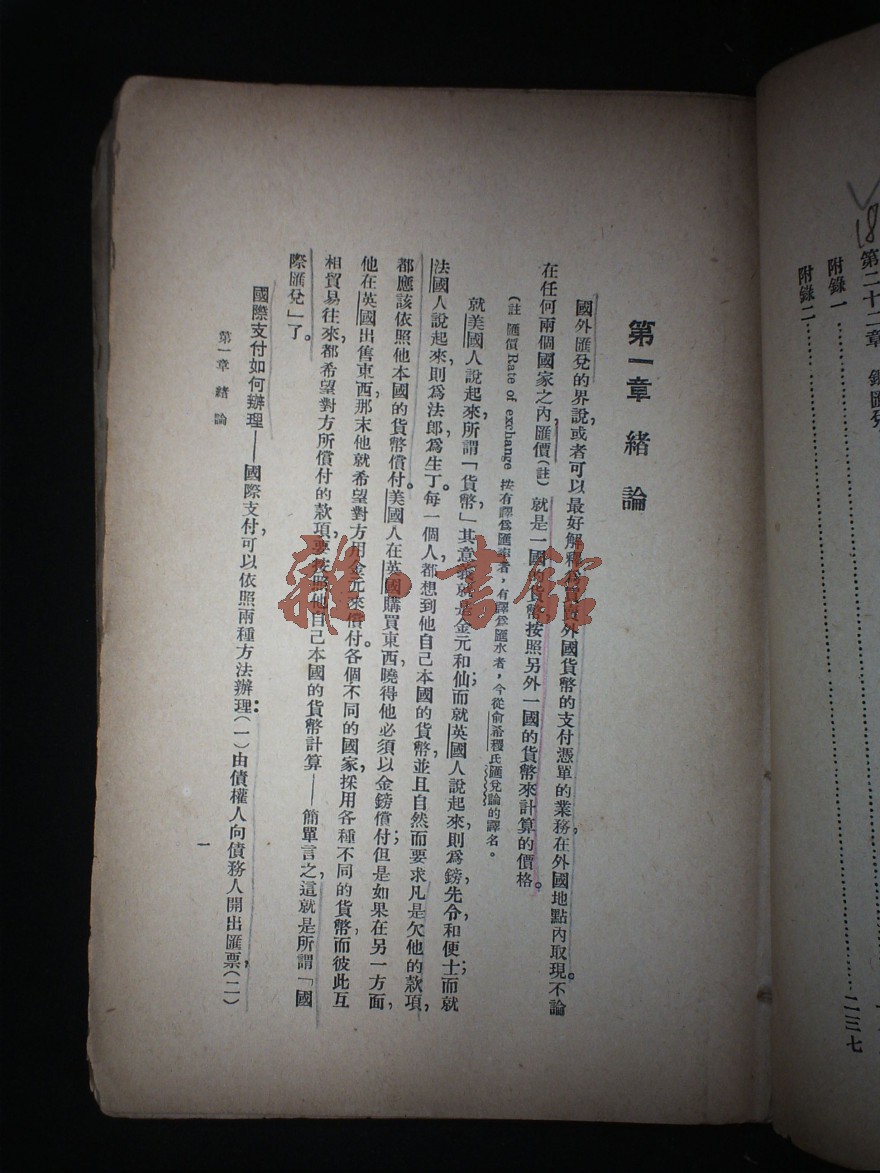 第一章　緒論
國外匯兌的界說，或者可以最好解釋爲買賣外國貨幣的支付憑單的業務，在外國地點內取現。不論
在任何兩個國家之內，匯價（註）就是一國的貨幣按照另外一國的貨幣來計算的價格。
（註　匯價Rate of exchange 按有譯爲匯率者，有譯爲匯水者，今從俞希稷氏匯兌論的譯名。
就美國人說起來，所謂「貨幣，」其意義就是金元和仙；而就英國人說起來，則爲鎊先令和便士；而就
法國人說起來，則爲法郎爲生丁。每一個人，都想到他自己本國的貨幣，並且自然而要求凡是欠他的款項，
都應該依照他本國的貨幣償付。美國人在英國購買東西，曉得他必須以金鎊償付；但是如果在另一方面，
他在英國出售東西，那末他就希望對方用金元來償付。各個不同的國家，採用各種不同的貨幣，而彼此互
相貿易往來，都希望對方所償付的款項，要按照他自己本國的貨幣計算——簡單言之，這就是所謂「國
際匯兌」了。
國際支付如何辦理——國際支付，可以依照兩種方法辦理：（一）由債權人向債務人開出匯票，（二）
第一章　緒論
一
18
第二十二章　銀匯兌
附錄一
附錄二……二三七
雜·書館